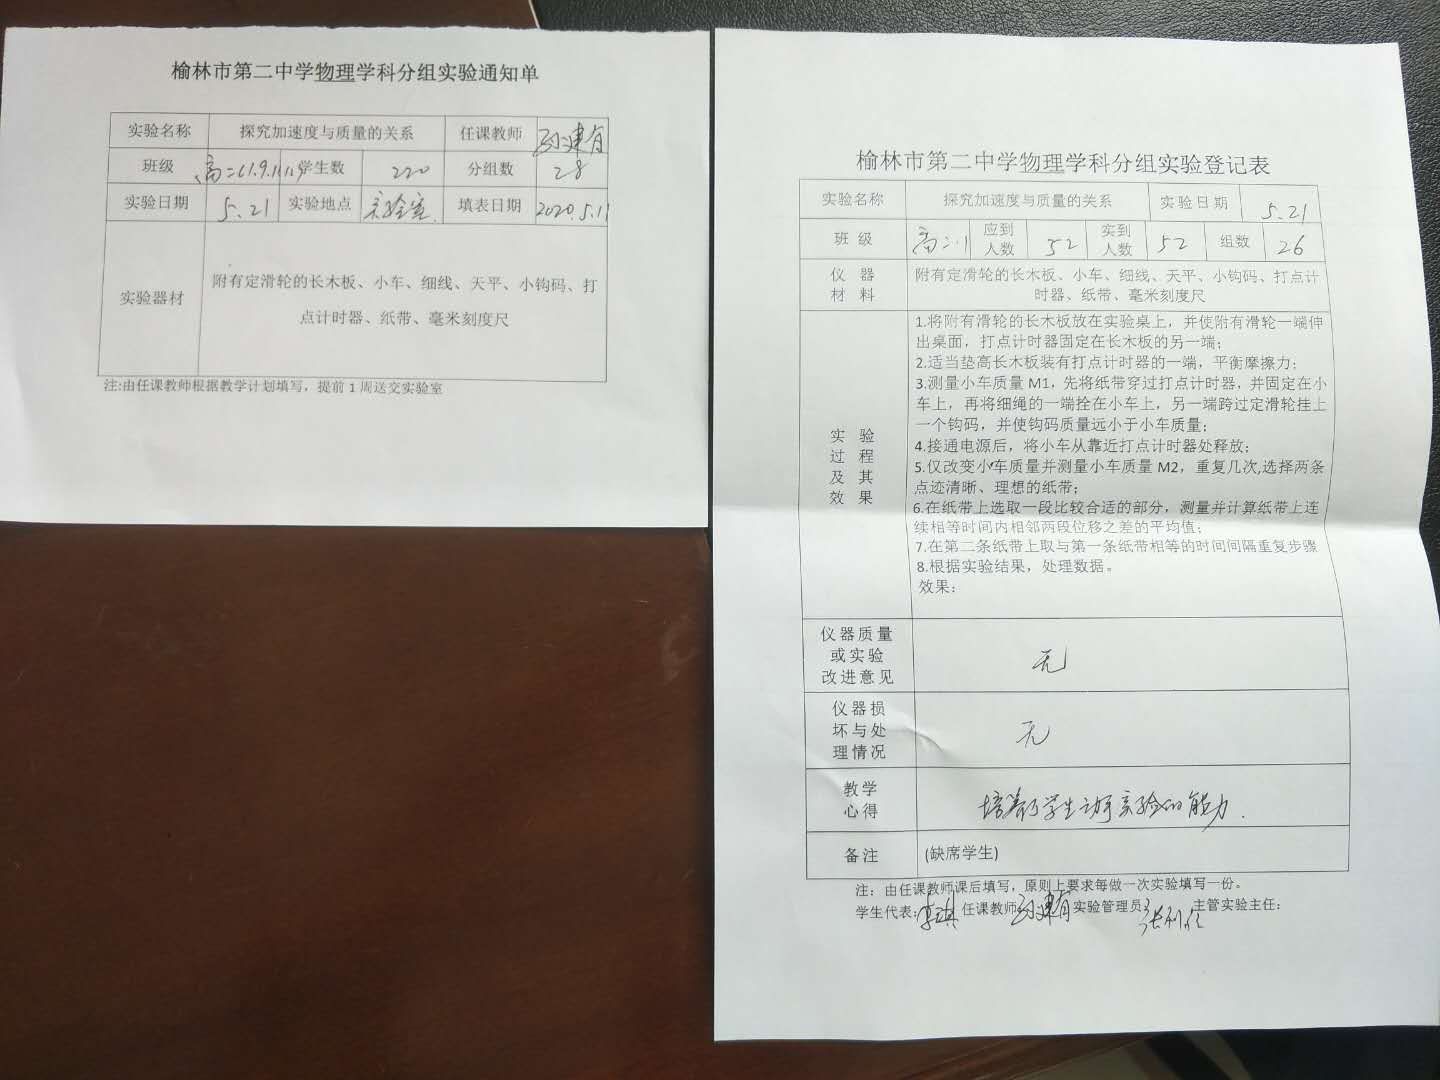 榆林市第二中学物理学科分组实验通知单
实验名称 探究加速度与质量的关系 任课教师
班级 学生数 220 分组数 28
实验日期 5.21 实验地点 实验室 填表日期 2020.5.11
实验器材 附有定滑轮的长木板、小车、细线、天平、小钩码、打
点计时器、纸带、毫米刻度尺
注:由任课教师根据教学计划填写，提前 1 周送交实验室
榆林市第二中学物理学科分组实验登记表
实验名称 探究加速度与质量的关系 实验日期 5.21
班 级 高二.1 应到人数 52 实到人数 52 组数 26
仪 器
材 料
附有定滑轮的长木板、小车、细线、天平、小钩码、打点计
时器、纸带、毫米刻度尺
实 验
过 程
及 其
效 果
1.将附有滑轮的长木板放在实验桌上，并使附有滑轮一端伸
出桌面，打点计时器固定在长木板的另一端；
2.适当垫高长木板装有打点计时器的一端，平衡摩擦力；
3.测量小车质量 M1，先将纸带穿过打点计时器，并固定在小
车上，再将细绳的一端拴在小车上，另一端跨过定滑轮挂上
一个钩码，并使钩码质量远小于小车质量；
4.接通电源后，将小车从靠近打点计时器处释放；
5.仅改变小车质量并测量小车质量 M2，重复几次,选择两条
点迹清晰、理想的纸带；
6.在纸带上选取一段比较合适的部分，测量并计算纸带上连
续相等时间内相邻两段位移之差的平均值；
7.在第二条纸带上取与第一条纸带相等的时间间隔重复步骤
8.根据实验结果，处理数据。
效果：
仪器质量
或实验
改进意见
无
仪器损
坏与处
理情况
无
教学
心得
培养了学生动手实验的能力.
备注 (缺席学生)
注：由任课教师课后填写，原则上要求每做一次实验填写一份。
学生代表: 李琪 任课教师 实验管理员: 主管实验主任: